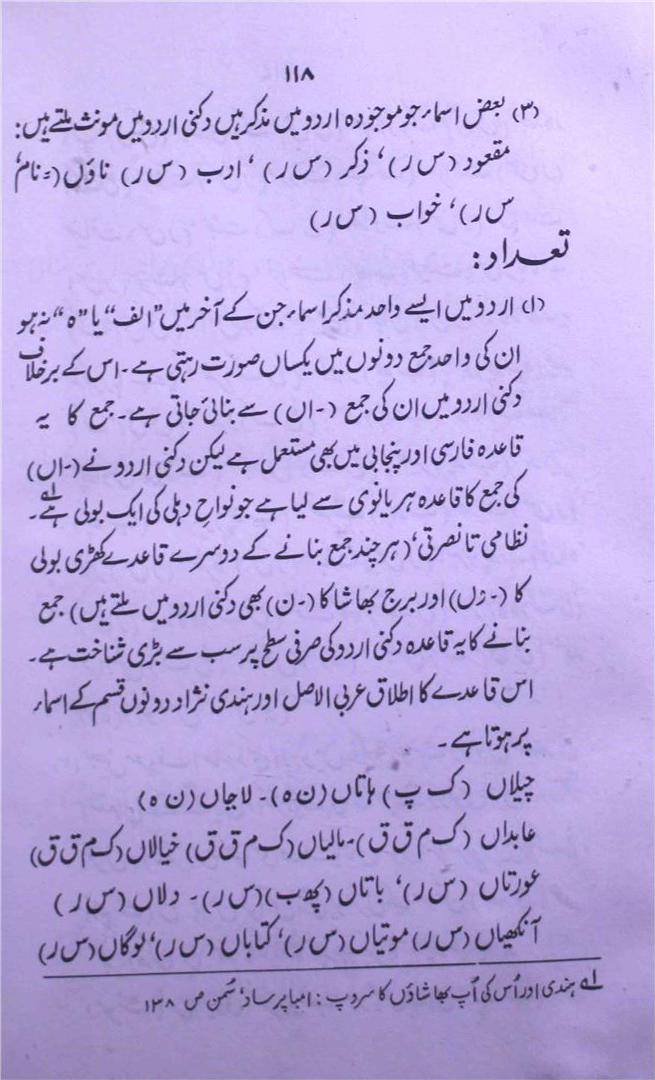 ۱۱۸
(۳) بعض اسماء جو موجودہ اردو میں مذکر ہیں دکنی اردو میں مونث ملتے ہیں:
مقعود (س ر)، ذکر (س ر) ، ادب (س ر) ناؤں (= نام،
س ر)، خواب (س ر)
تعداد:
(۱) اردو میں ایسے واحد مذکر اسماء جن کے آخر میں "الف" یا "ہ" نہ ہو
ان کی واحد جمع دونوں میں یکساں صورت رہتی ہے۔ اس کے برخلاف
دکنی اردو میں ان کی جمع (-اں) سے بنائی جاتی ہے۔ جمع کا یہ
قاعدہ فارسی اور پنجابی میں بھی مستعمل ہے لیکن دکنی اردو نے (-اں)
کی جمع کا قاعدہ ہریانوی سے لیا ہے جو نواحِ دہلی کی ایک بولی ہے۔ ؎۱
نظامی تا نصرتی، (ہر چند جمع بنانے کے دوسرے قاعدے کھڑی بولی
کا (-وں) اور برج بھاشا کا (-ن) بھی دکنی اردو میں ملتے ہیں) جمع
بنانے کا یہ قاعدہ دکنی اردو کی صرفی سطح پر سب سے بڑی شناخت ہے۔
اس قاعدے کا اطلاق عربی الاصل اور ہندی نژاد دونوں قسم کے اسماء
پر ہوتا ہے۔
چیلاں (ک پ) ہاتاں (ن ہ)۔ لاجاں (ن ہ)
عابداں (ک م ق ق)۔ مالیاں (ک م ق ق) خیالاں (ک م ق ق)
عورتاں (س ر)، باتاں (پھ ب) (س ر)۔ دلاں (س ر)
آنکھیاں (س ر) موتیاں (س ر)، کتاباں (س ر)، لوگاں (س ر)
؎۱ ہندی اور اُس کی اُپ بھاشاؤں کا سروپ: امبا پرساد، سُمن ص ۱۳۸